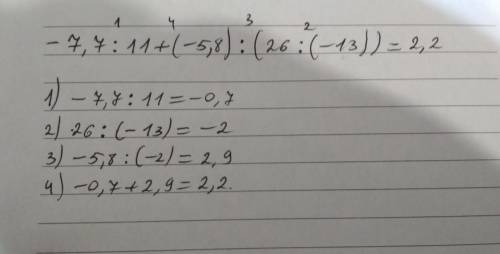 1 4 3 2
-7,7 : 11 + (-5,8) : (26 : (-13)) = 2,2
1) -7,7 : 11 = -0,7
2) 26 : (-13) = -2
3) -5,8 : (-2) = 2,9
4) -0,7 + 2,9 = 2,2.